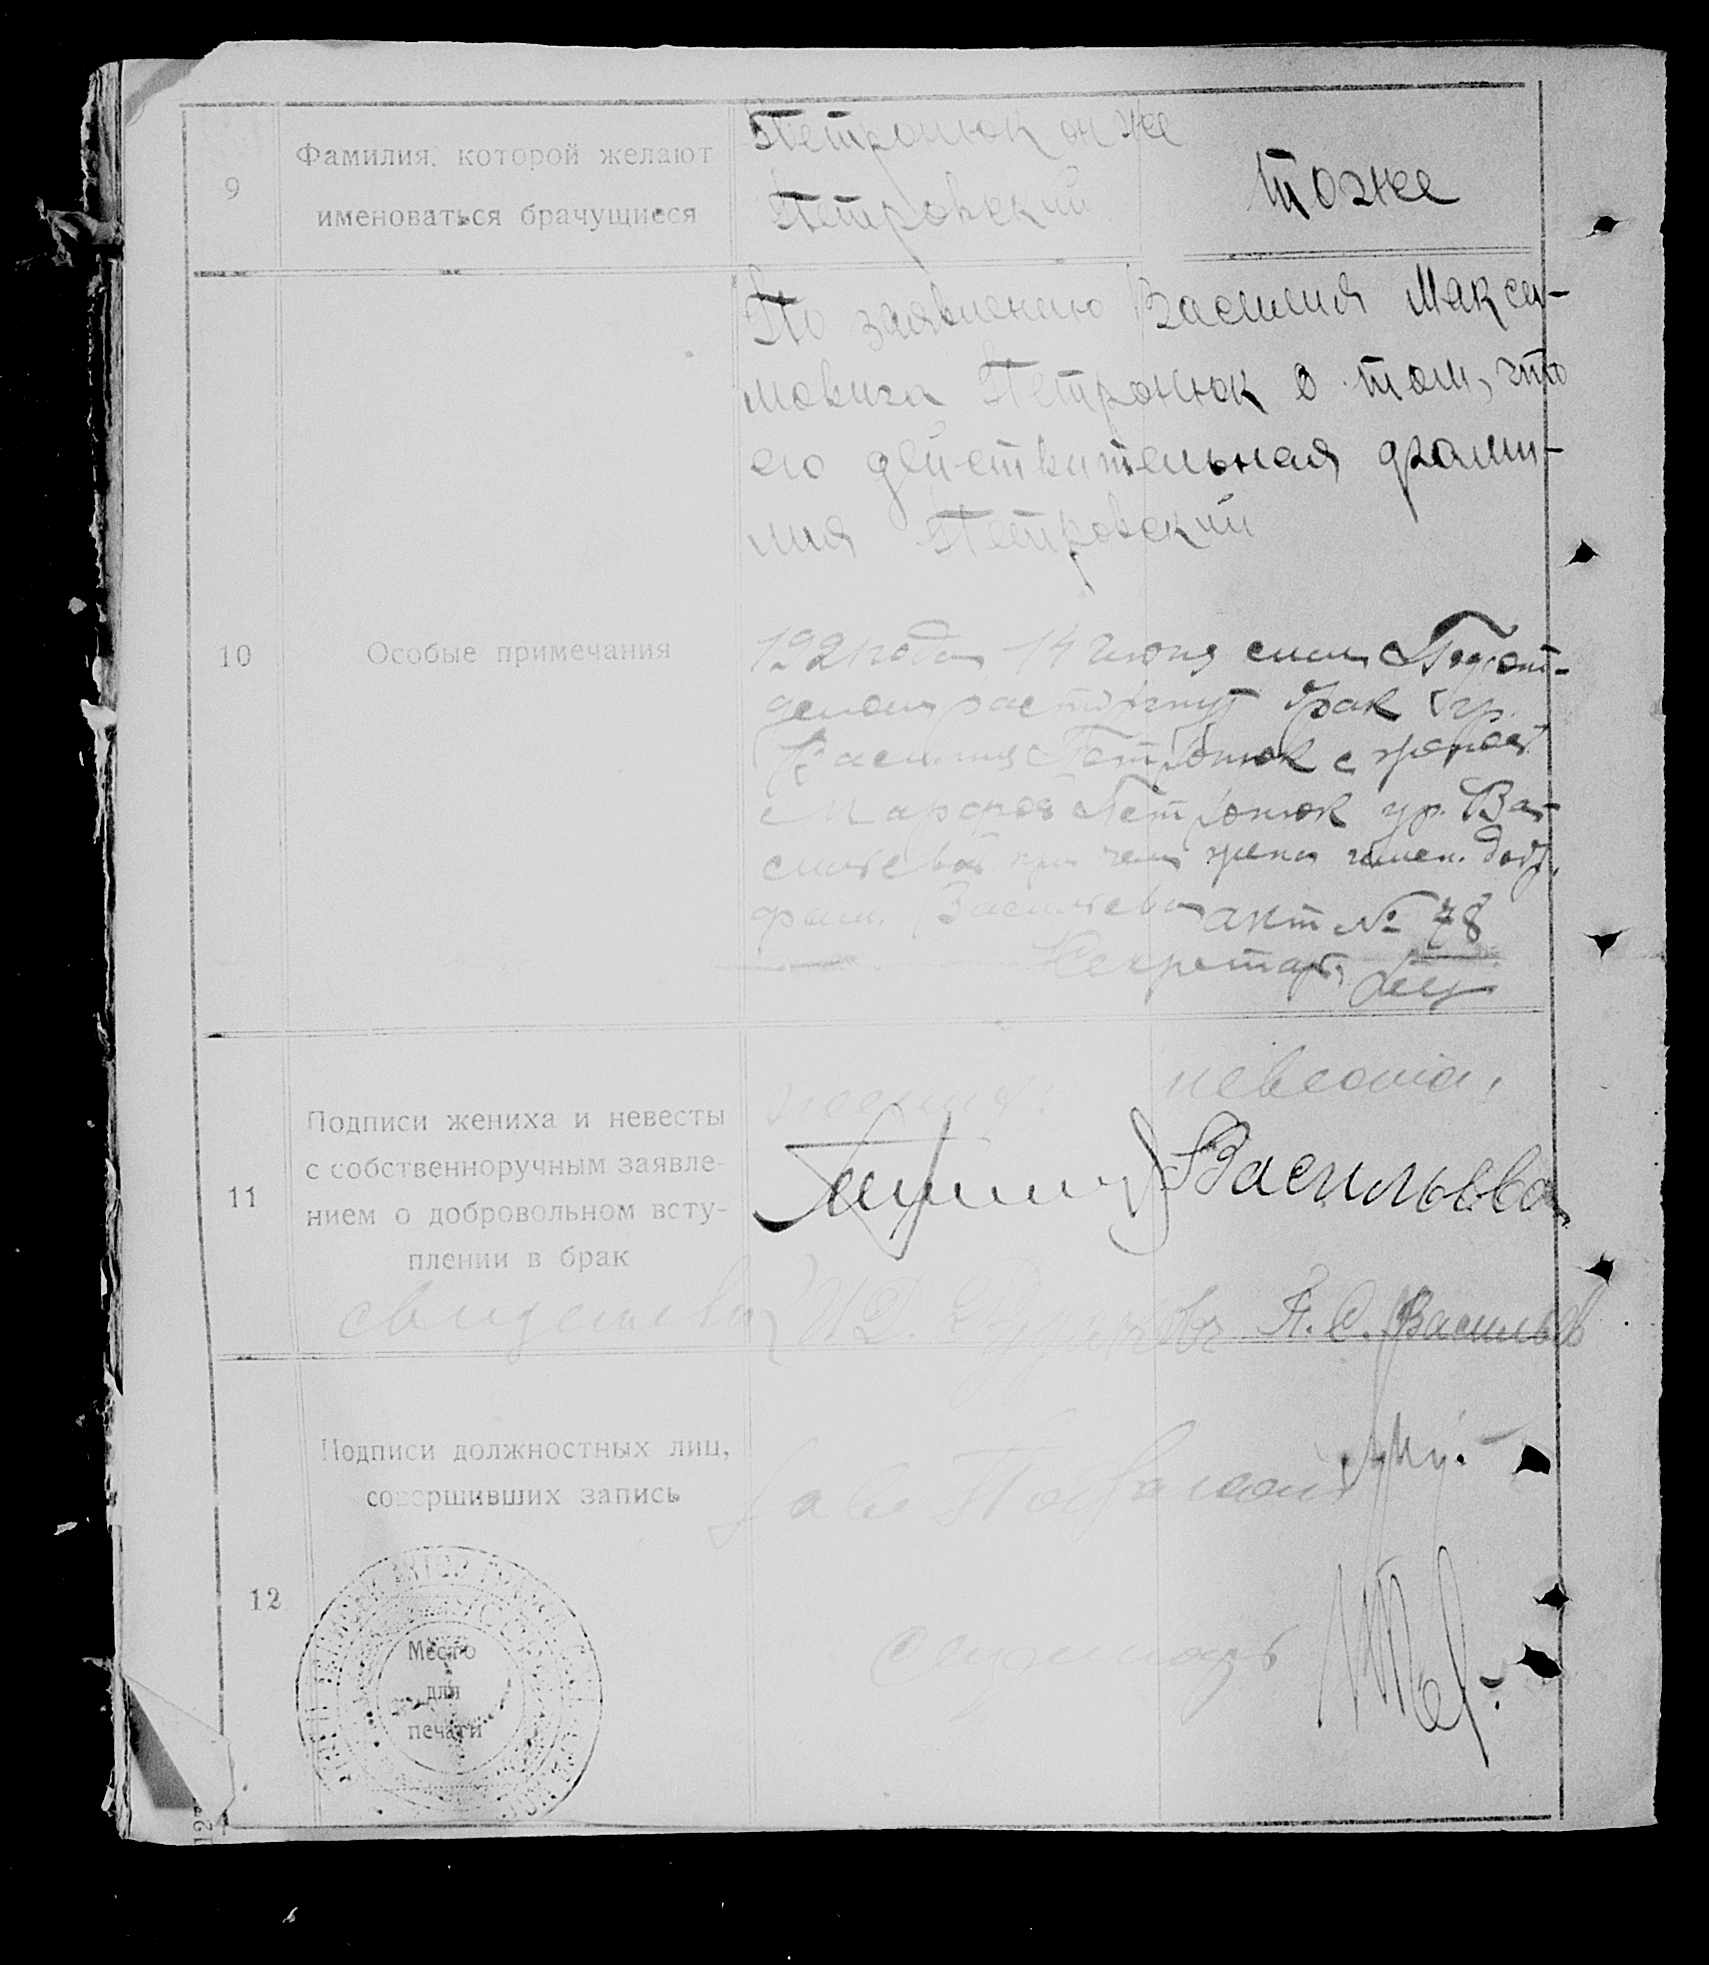 9
Фамилия, которой желают
именоваться брачущиеся
Петронюк он же
Петровский
тоже
10
Особые примечания
По заявлению Василия Макси-
мовича Петронюк о том, что
его действительная фами-
лия Петровский
1921 года 14 июня сим Подот-
делом расторгнут брак гр.
Василия Петронюк с женой
Марфой Петронюк ур. Ва-
сильевой при чем жена
фам. Васильева акт № 78
Секретарь
11
Подписи жениха и невесты
с собственноручным заявле-
нием о добровольном всту-
плении в брак
жених:
невеста,
Васильева
свидетели
П. С. Васильев
12
Подписи должностных лиц,
совершивших запись
Зав Подотделом
Секретарь
Место
для
печати